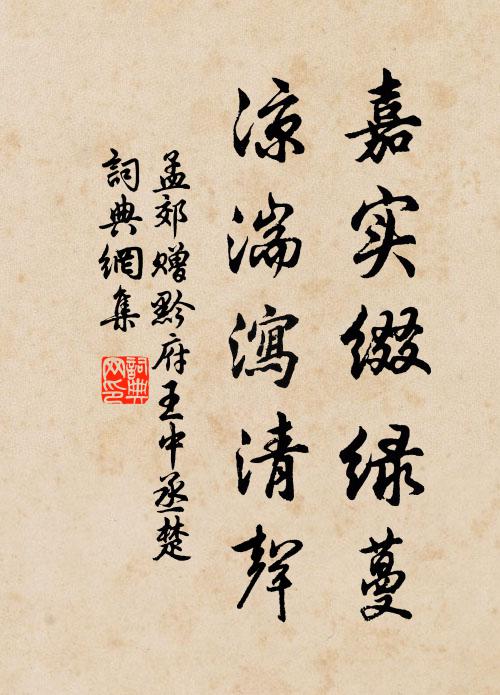 嘉实缀绿蔓
凉湍泻清聲
孟郊赠黔府王中丞楚
詞典網集
詞典网印